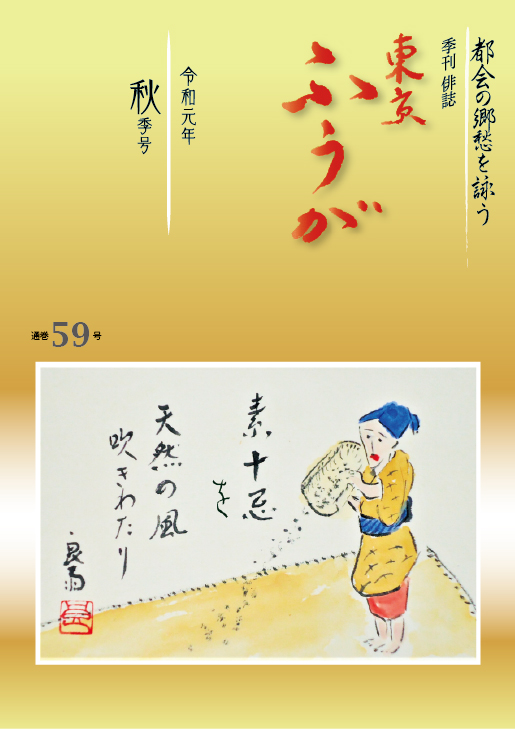 都会の郷愁を詠う
季刊 俳誌
東京
ふうが
令和元年
秋季号
通巻59号
素十忌
を
天然の風
吹きわたり